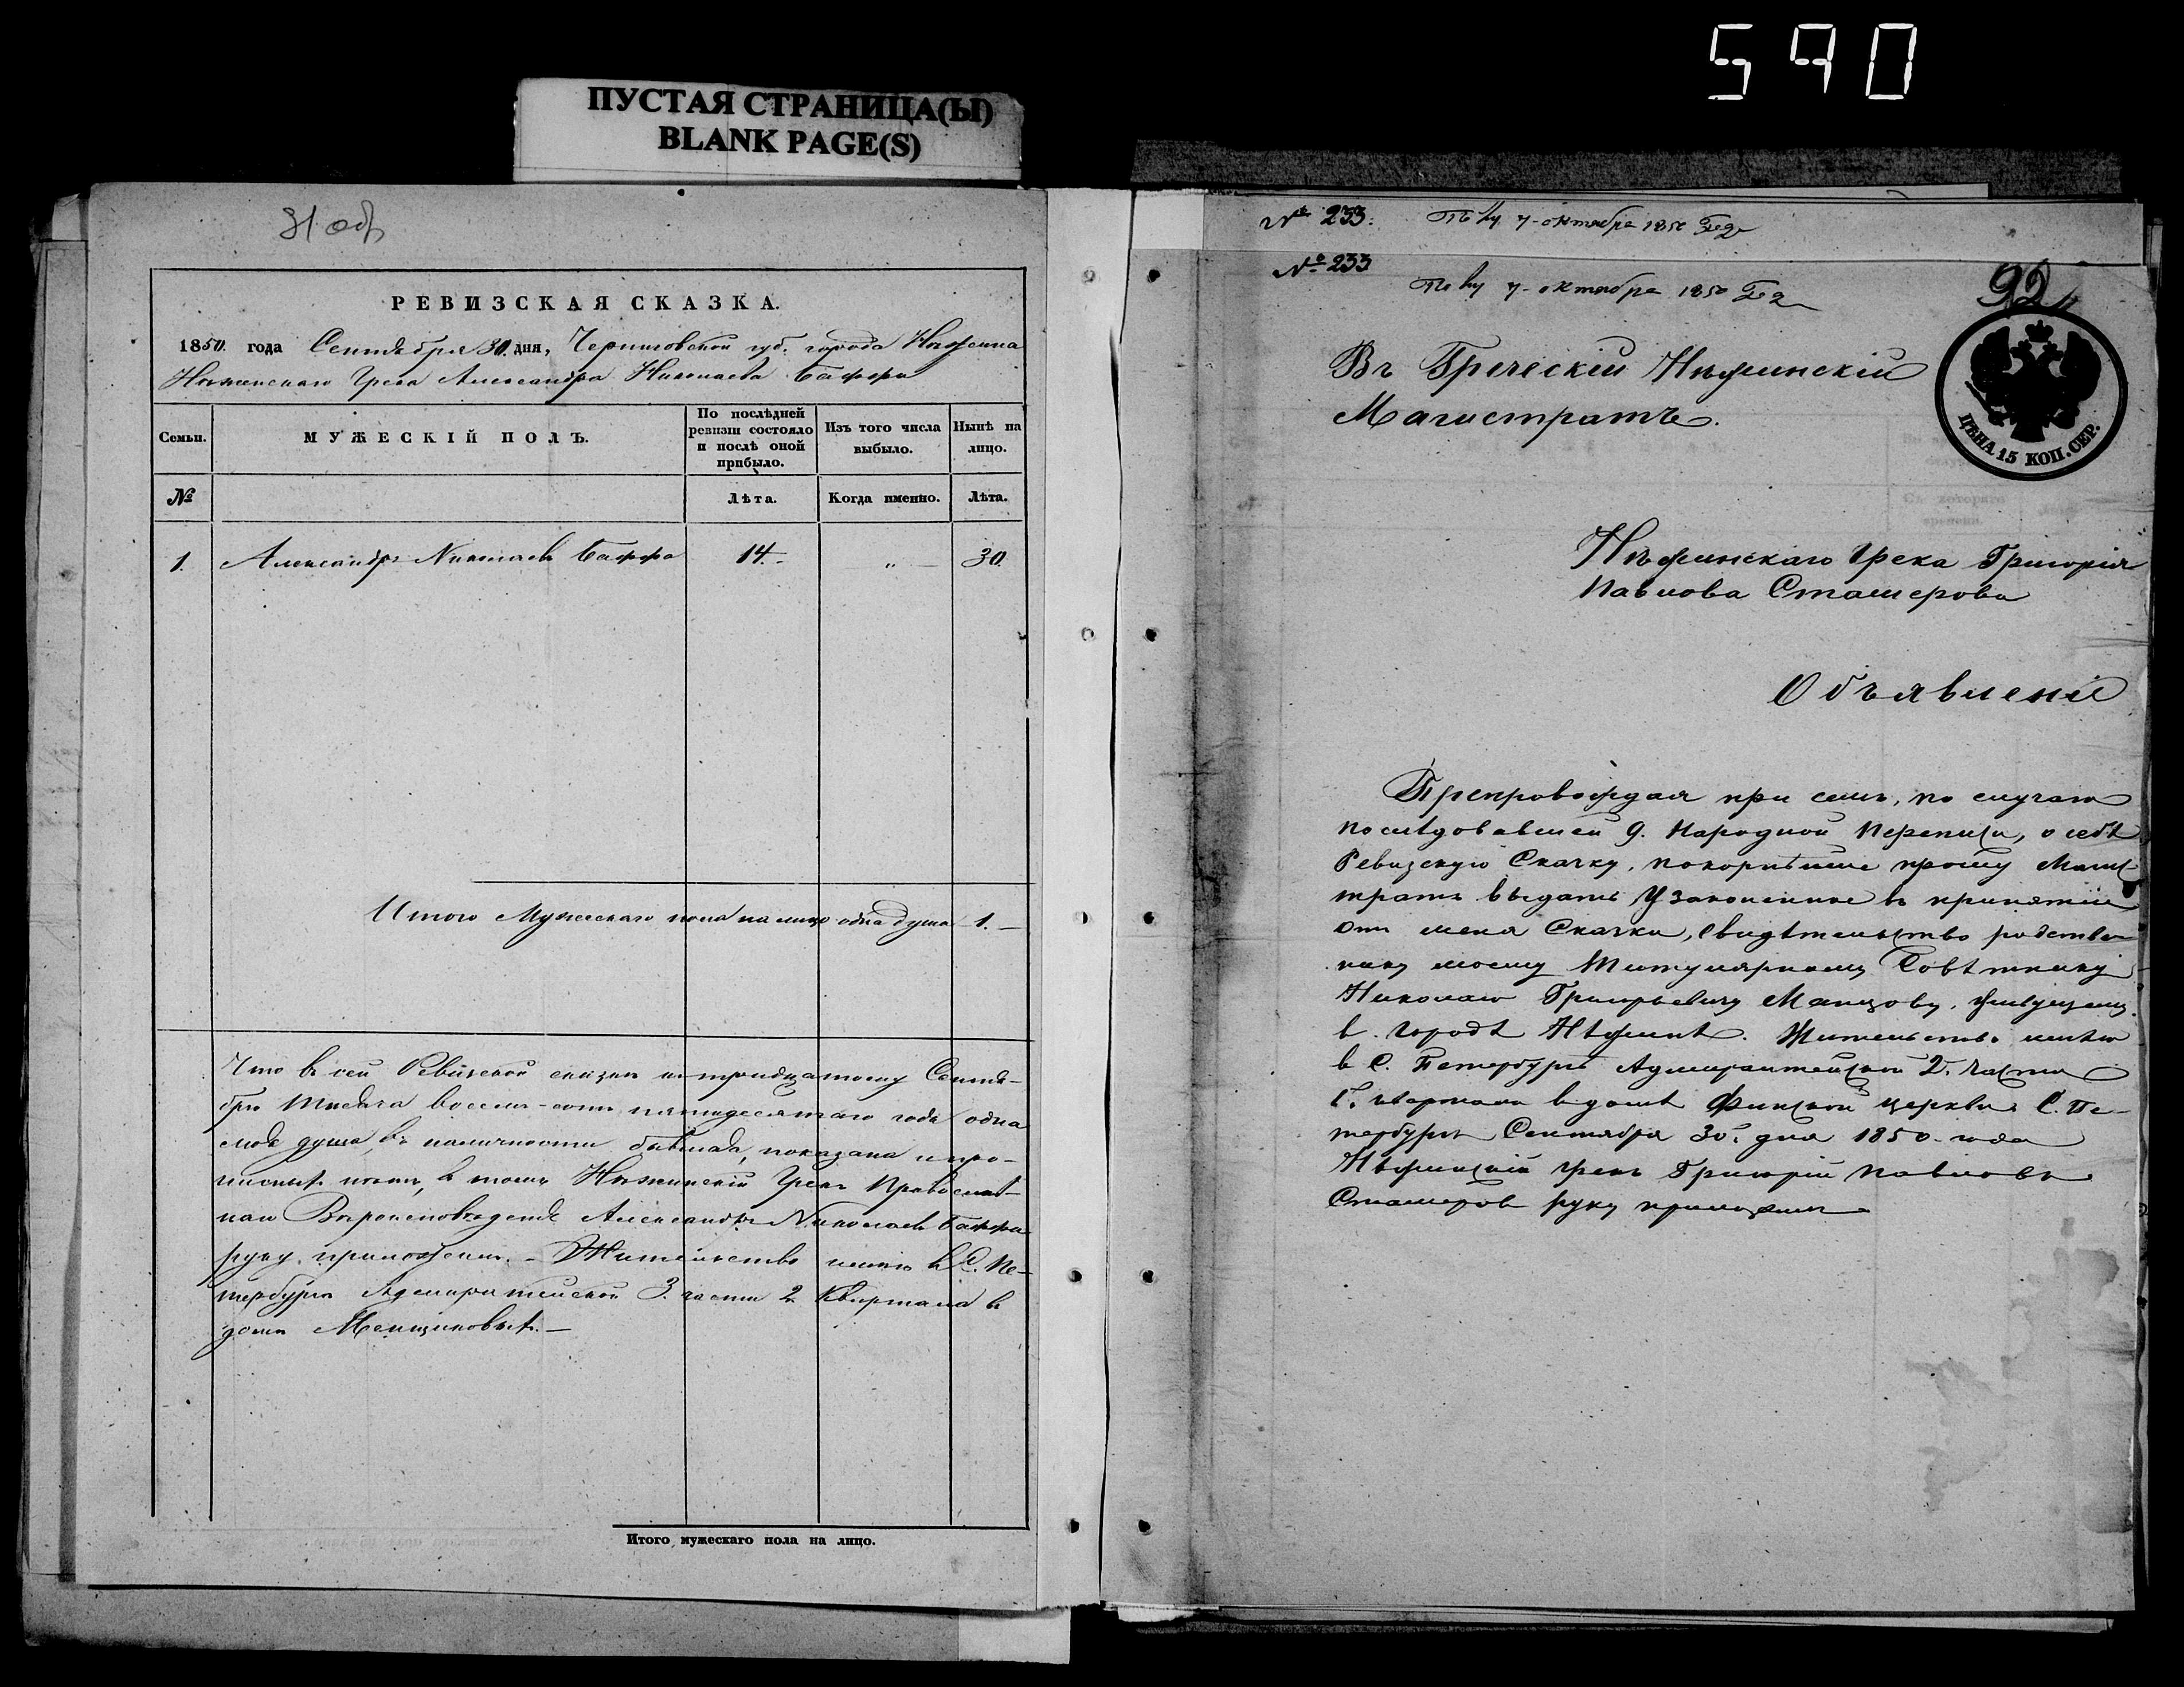 590
ПУСТАЯ СТРАНИЦА(Ы)
BLANK PAGE(S)
31 об
РЕВИЗСКАЯ СКАЗКА.
1850. года Сентября 30. дня, Черниговской губ. города Нѣжина
Нѣжинскаго Грека Александра Николаева Баффа
Семьи.
МУЖЕСКІЙ ПОЛЪ.
По послѣдней ревизіи состояло и послѣ оной прибыло.
Изъ того числа выбыло.
Нынѣ на лицо.
№
Лѣта.
Когда именно.
Лѣта.
1. Александръ Николаевъ Баффа 14.- „ 30.
Итого Мужескаго пола на лицо одна душа 1.-
Что въ сей Ревизской сказкѣ къ тридцатому Сентя-
бря тысяча восемь-сотъ пятидесятаго года одна
моя душа, въ наличности бывшая, показана и про-
писныхъ нѣтъ, въ томъ Нѣжинскій Грекъ Православ-
наго Вѣроисповѣданія Александръ Николаевъ Баффа
руку приложилъ. - Жительство имѣю въ С. Пе-
тербургѣ Адмиралтейской 3. части 2. Квартала въ
домѣ Менщиковыхъ.-
Итого мужескаго пола на лицо.
№ 233. 7-октября 1850
№ 233
7-октября 1850
92
ЦѢНА 15 КОП. СЕР.
Въ Греческій Нѣжинскій
Магистратъ.
Нѣжинскаго Грека Григорія
Павлова Сташерова
Объявленіе
Препровождая при семъ, по случаю
послѣдовавшей 9. Народной Переписи, о себѣ
Ревизскую Скаску, покорнѣйше прошу Магис-
тратъ выдать Узаконенное въ принятіи
отъ меня Скаски, свидѣтельство родствен-
нику моему Титулярному Совѣтнику
Николаю Григорьевичу Манцову, живущему
в городѣ Нѣжинѣ. Жительство имѣю
в С. Петербургѣ Адмиралтейской 2й части
1го квартала в домѣ Финской церкви. С. Пе-
тербургъ Сентября 30го дня 1850-года
Нѣжинскій Грекъ Григорій Павловъ
Сташеров руку приложилъ